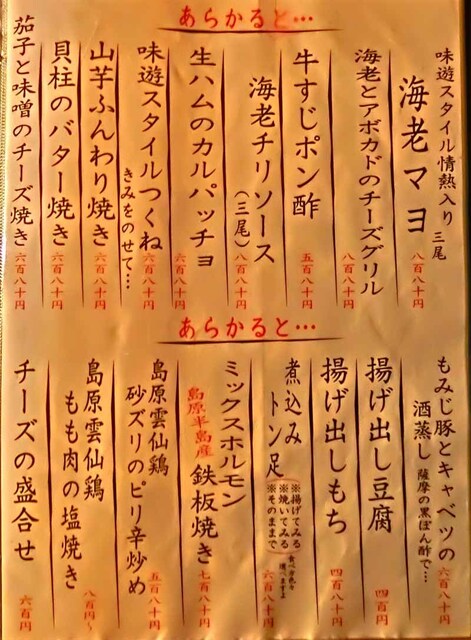 あらかると…
味遊スタイル情熱入り
海老マヨ 三尾 八百八十円
海老とアボカドのチーズグリル 八百八十円
牛すじポン酢 五百八十円
海老チリソース(三尾) 八百八十円
生ハムのカルパッチョ 六百八十円
味遊スタイルつくね
きみをのせて… 六百八十円
山芋ふんわり焼き 六百八十円
貝柱のバター焼き 六百八十円
茄子と味噌のチーズ焼き 六百八十円
あらかると…
もみじ豚とキャベツの
酒蒸し 薩摩の黒ぽん酢で… 六百八十円
揚げ出し豆腐 四百円
揚げ出しもち 四百八十円
煮込み
トン足
※揚げてみる
※焼いてみる
※そのままで
食べ方色々
選べますよ
六百八十円
ミックスホルモン
島原半島産 鉄板焼き 七百八十円
島原雲仙鶏
砂ズリのピリ辛炒め 五百八十円
島原雲仙鶏
もも肉の塩焼き 八百円〜
チーズの盛合せ 六百円